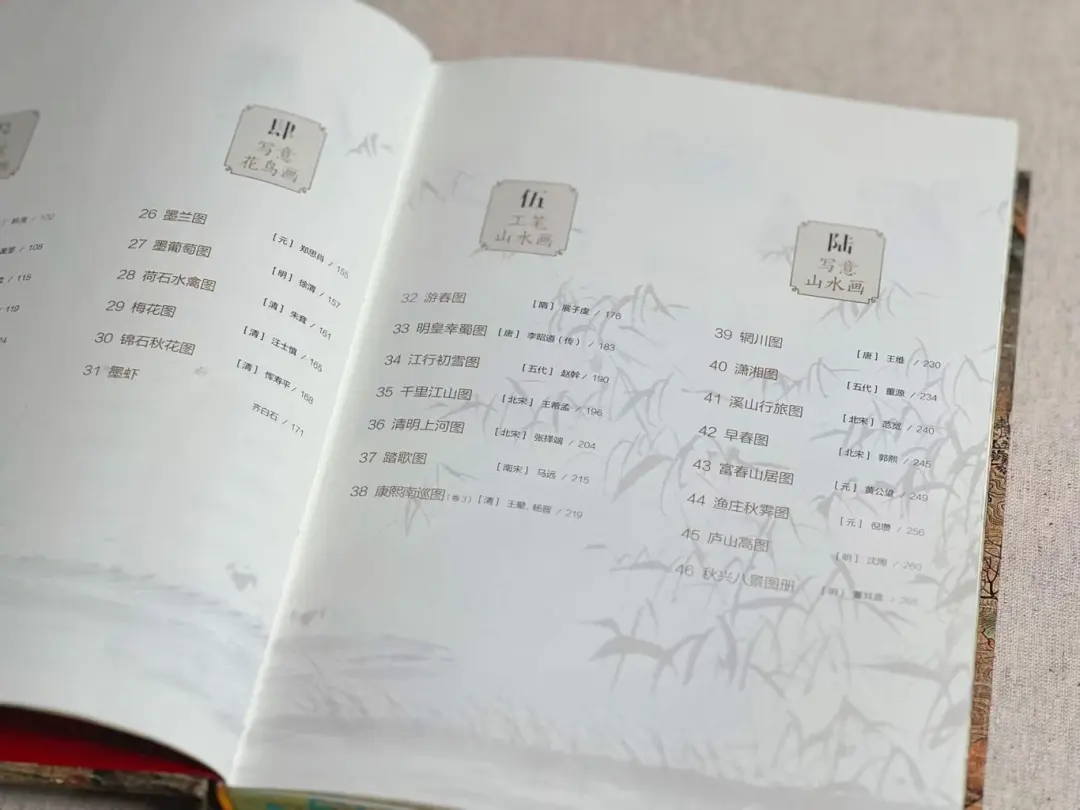 / 韩滉 / 100
/ 108
/ 115
/ 119
肆
写意
花鸟画
26 墨兰图 [元] 郑思肖 / 155
27 墨葡萄图 [明] 徐渭 / 157
28 荷石水禽图 [清] 朱耷 / 161
29 梅花图 [清] 汪士慎 / 165
30 锦石秋花图 [清] 恽寿平 / 168
31 墨虾 齐白石 / 171
伍
工笔
山水画
32 游春图 [隋] 展子虔 / 178
33 明皇幸蜀图 [唐] 李昭道（传） / 183
34 江行初雪图 [五代] 赵幹 / 190
35 千里江山图 [北宋] 王希孟 / 196
36 清明上河图 [北宋] 张择端 / 204
37 踏歌图 [南宋] 马远 / 215
38 康熙南巡图（卷3） [清] 王翚、杨晋 / 219
陆
写意
山水画
39 辋川图 [唐] 王维 / 230
40 潇湘图 [五代] 董源 / 234
41 溪山行旅图 [北宋] 范宽 / 240
42 早春图 [北宋] 郭熙 / 245
43 富春山居图 [元] 黄公望 / 249
44 渔庄秋霁图 [元] 倪瓒 / 256
45 庐山高图 [明] 沈周 / 260
46 秋兴八景图册 [明] 董其昌 / 265